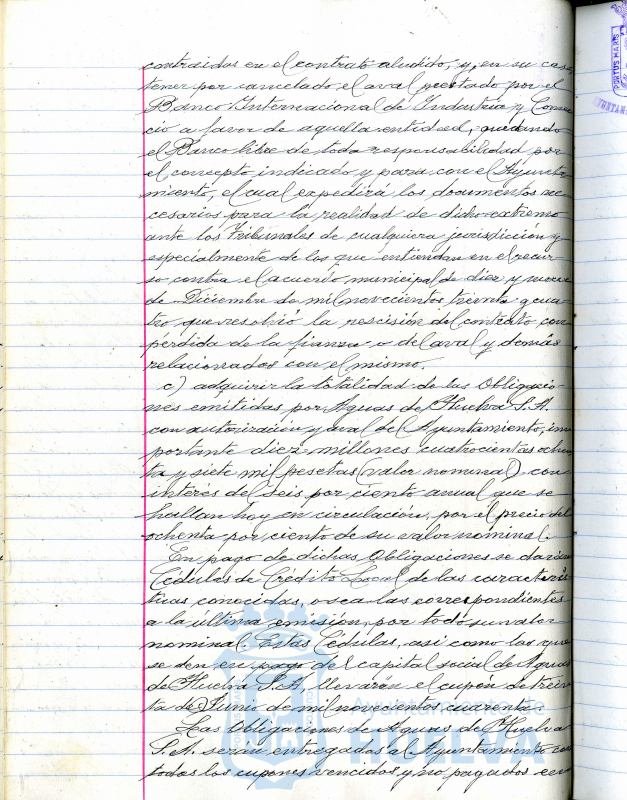 contraidas en el contrato aludido, y, en su caso,
tener por cancelado el aval prestado por el
Banco Internacional de Industria y Comer
cio a favor de aquella entidad, quedando
el Banco libre de toda responsabilidad por
el concepto indicado y para con el Ayunta
miento, el cual expedirá los documentos ne
cesarios para la realidad de dicho extremo
ante los Tribunales de cualquiera jurisdicción y
especialmente de los que entiendan en el recur
so contra el acuerdo municipal de diez y nueve
de Diciembre de mil novecientos treinta y cua
tro que resolvió la rescisión del contrato con
pérdida de la fianza o del aval y demás
relacionados con el mismo.
c) adquirir la totalidad de las Obligacio
nes emitidas por Aguas de Huelva S.A.
con autorización y aval del Ayuntamiento, im
portante diez millones cuatrocientas ochen
ta y siete mil pesetas (valor nominal) con
interés del seis por ciento anual que se
hallan hoy en circulación, por el precio del
ochenta por ciento de su valor nominal.
En pago de dichas Obligaciones se darán
Cédulas de Crédito Local de las caracterís
ticas conocidas, o sea las correspondientes
a la última emisión, por todo su valor
nominal. Estas Cédulas, así como las que
se den en pago del capital social de Aguas
de Huelva S.A. llevarán el cupón de trein
ta de Junio de mil novecientos cuarenta.
Las Obligaciones de Aguas de Huelva
S.A. serán entregadas al Ayuntamiento con
todos los cupones vencidos y no pagados
PORTUS MARIS
AYUNTAMIENTO
HUELVA